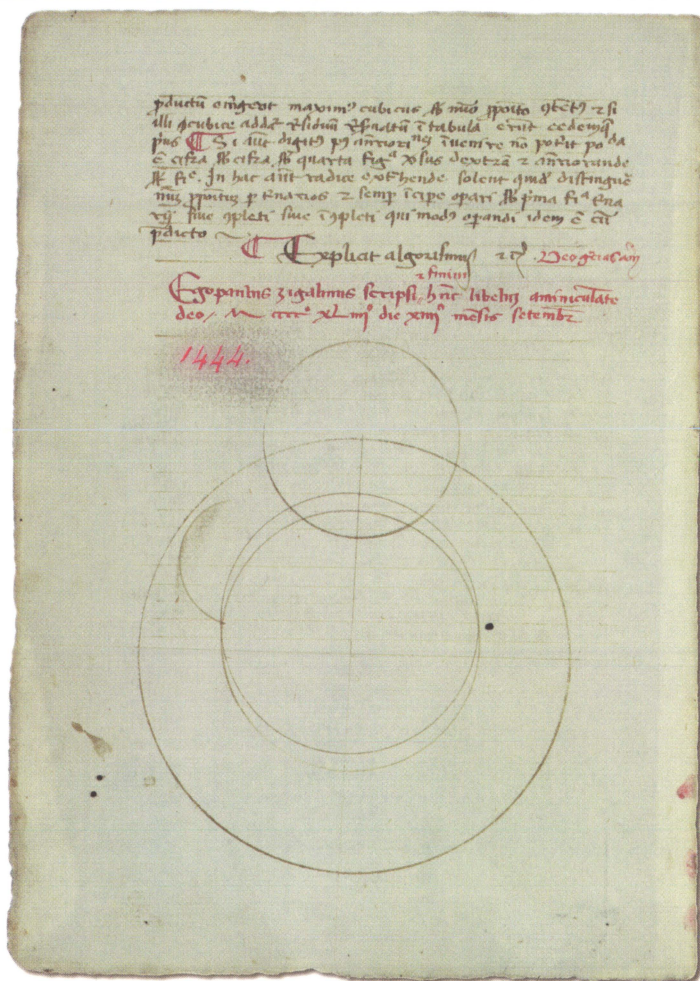 ꝓductū ꝯiūgeut maximꝰ cubicus sb nůo ꝓpoito ꝯtētꝰ ⁊ si
illi cubice addat̄ rꝭiduū rꝭuatū ī tabula erūt eedemqꝫ
pꝰus ¶ Si aut̄ digitꝰ pꝰ inuenire nō potit poda
ē cifra sb cifra sb quarta figᵃ ꝟsus dextrā ⁊ anꝉiorande
In hac aūt radice ext̄hende solent quidē distinguē
nūꝫ ꝓpoitus p t̄narios ⁊ semp īcipe opari sb pima fiᵃ t̄na
rij siue ꝯpleti siue īꝯpleti qui modꝰ opandi idem ē cū
pdicto
¶ Explicit algorismus ⁊cꝫ . Deo gr̄as am̄
⁊ finiui
Ego paulus zigalinus scripsi hūc libellū aminiculāte
deo / M ccccº xLiiijº die xiiijº mēsis setembr̄
1444.